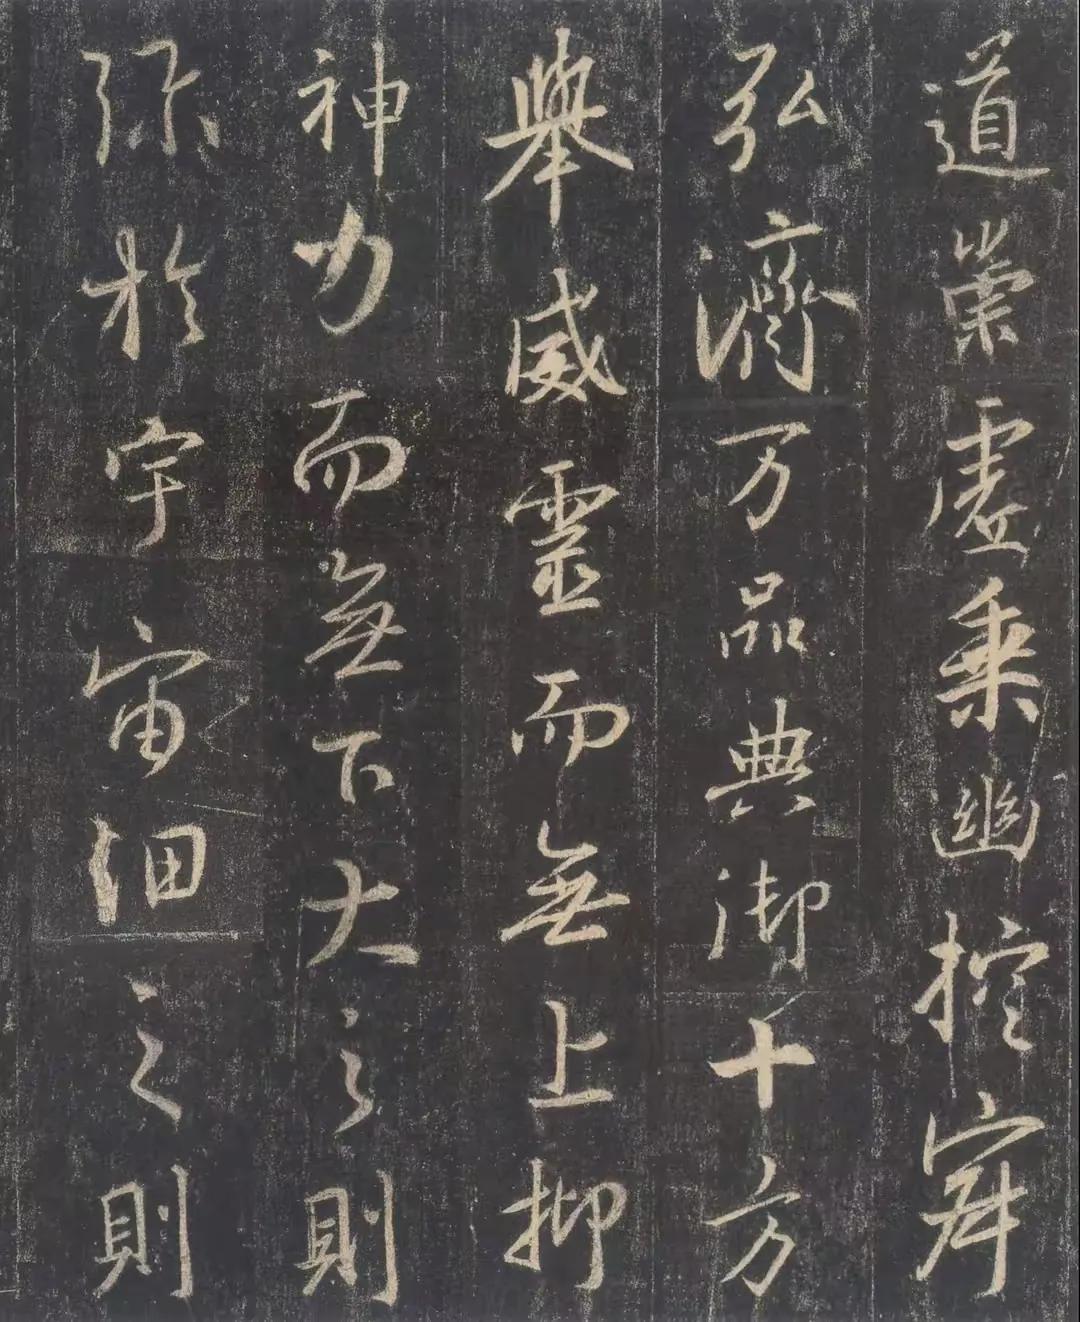 道崇虛乘幽控寂
弘濟万品典御十方
舉威靈而無上抑
神力而無下大之則
弥於宇宙細之則